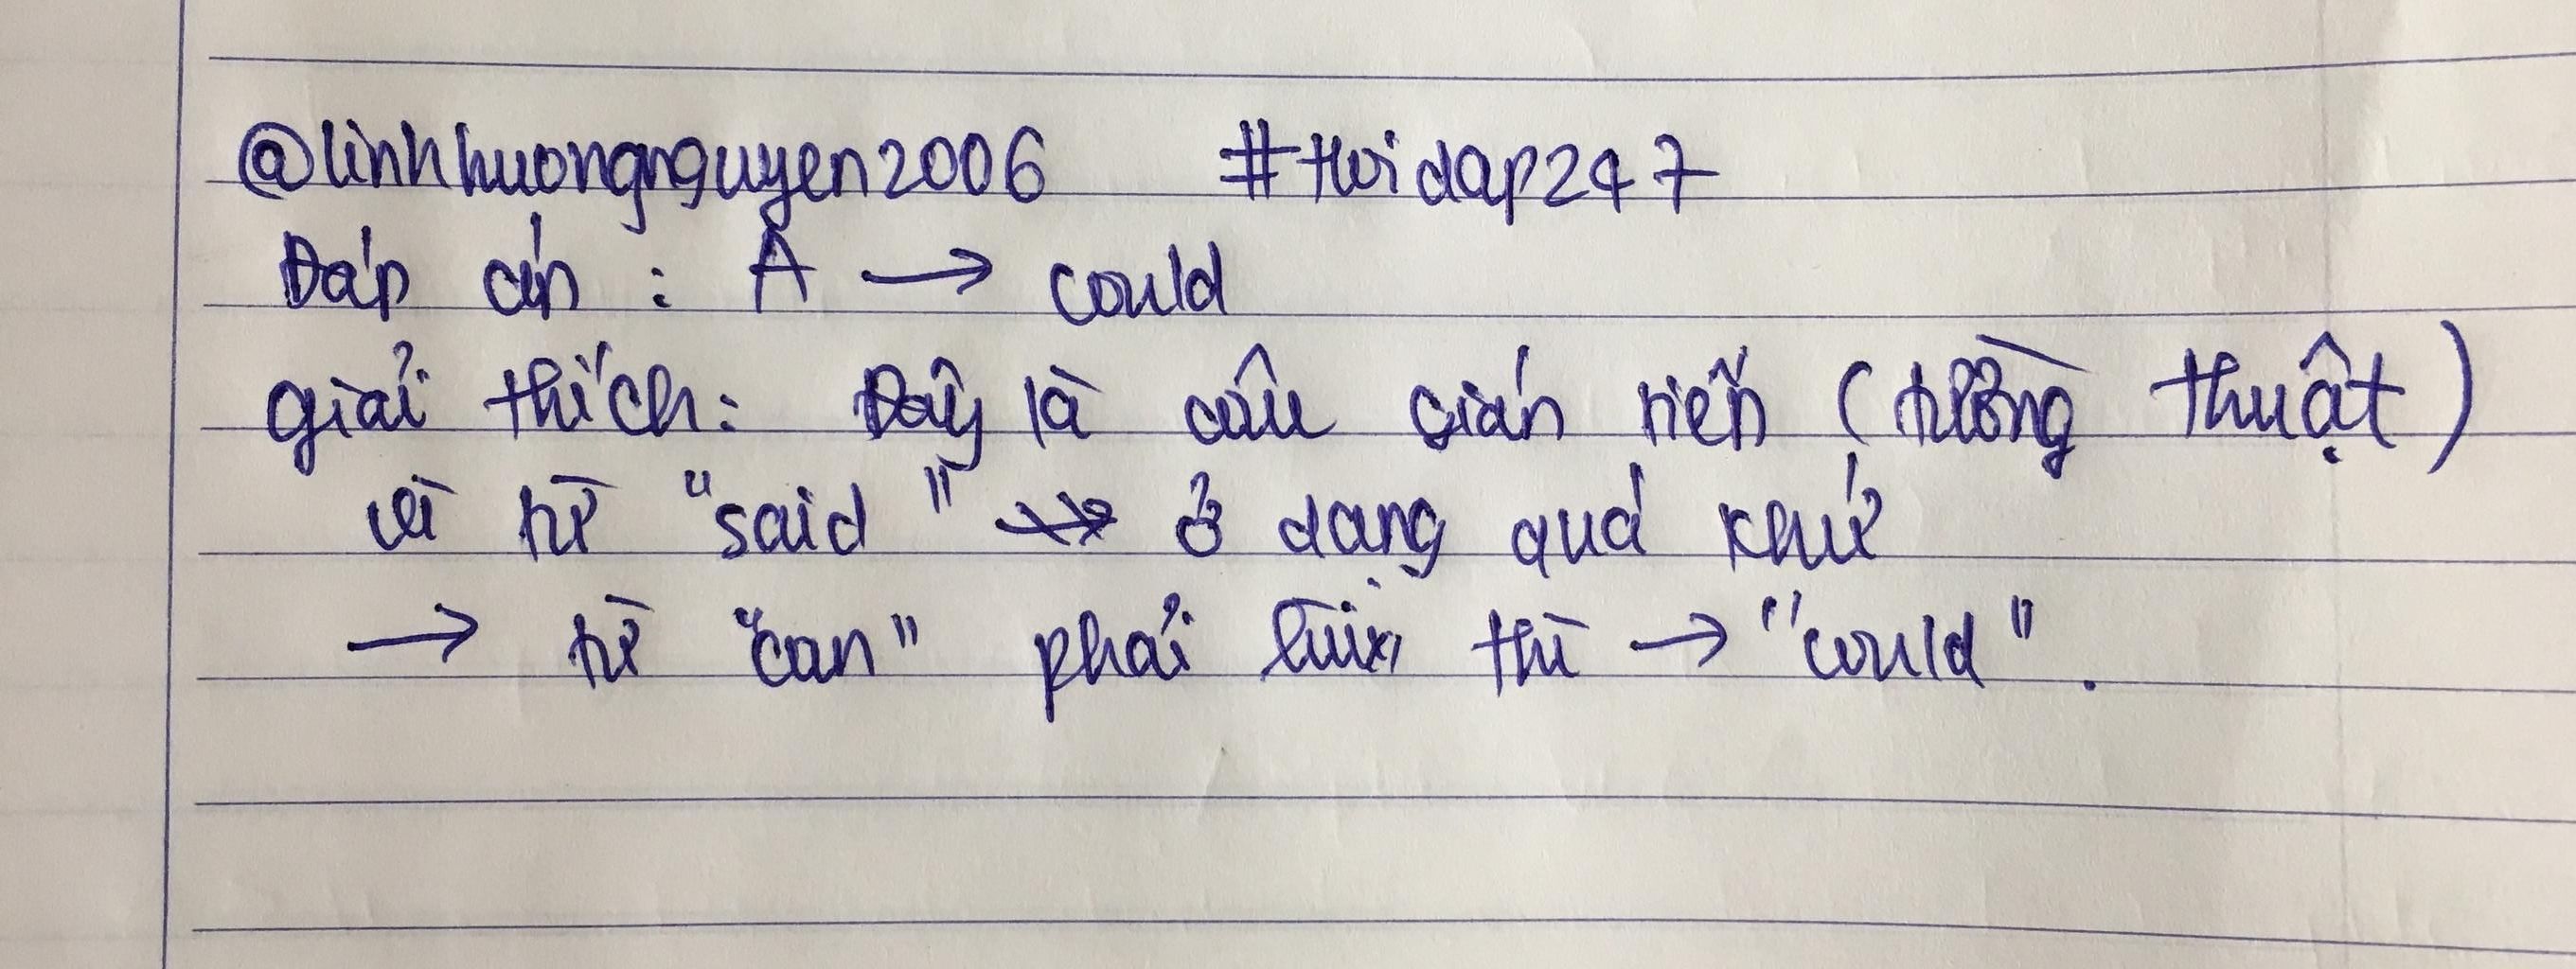 @linhhuongnguyen2006 #hoidap247
Đáp án : A → could
giải thích: Đây là câu gián tiếp (tường thuật)
vì từ "said" ở dạng quá khứ
→ từ "can" phải lùi thì → "could".